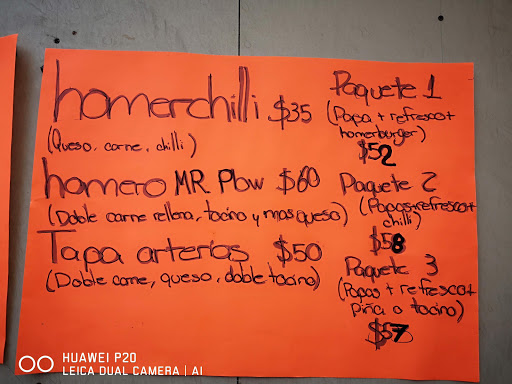 homerchilli $35
(Queso, carne, chilli)
homero MR Plow $60
(Doble carne rellena, tocino y mas queso)
Tapa arterias $50
(Doble carne, queso, doble tocino)
Paquete 1
(Papa + refresco +
homerburger)
$52
Paquete 2
(Papas + refresco +
chilli)
$58
Paquete 3
(Papas + refresco +
piña o tocino)
$57
HUAWEI P20
LEICA DUAL CAMERA | AI